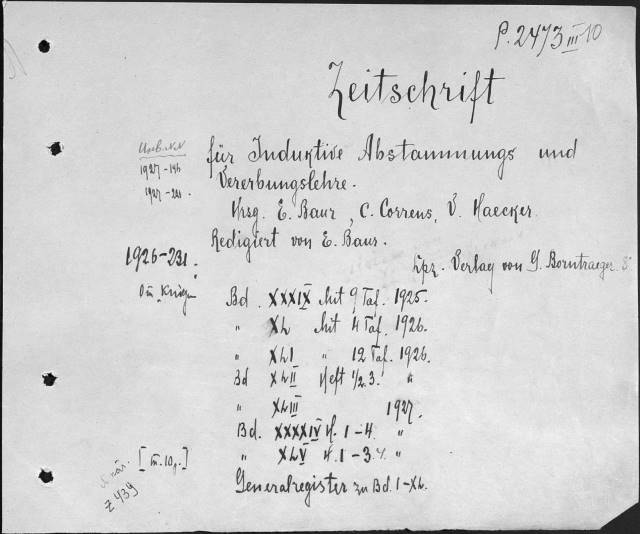 P. 2473 III 10
Zeitschrift
für Induktive Abstammungs und
Vererbungslehre.
Hrsg. E. Baur, C. Correns, V. Haecker.
Redigiert von E. Baur.
Lpz. Verlag von G. Borntraeger
1927-146
1927-221.
1926-231.
Bd. XXXIX Mit 9 Taf. 1925.
" XL Mit 4 Taf. 1926.
" XLI " 12 Taf. 1926.
Bd XLII Heft 1/2.3. "
" XLIII 1927.
Bd. XXXXIV H. 1-4. "
" XLV H. 1-3.4. "
Generalregister zu Bd. I-XL.
[III. 10 g.]
Z 439